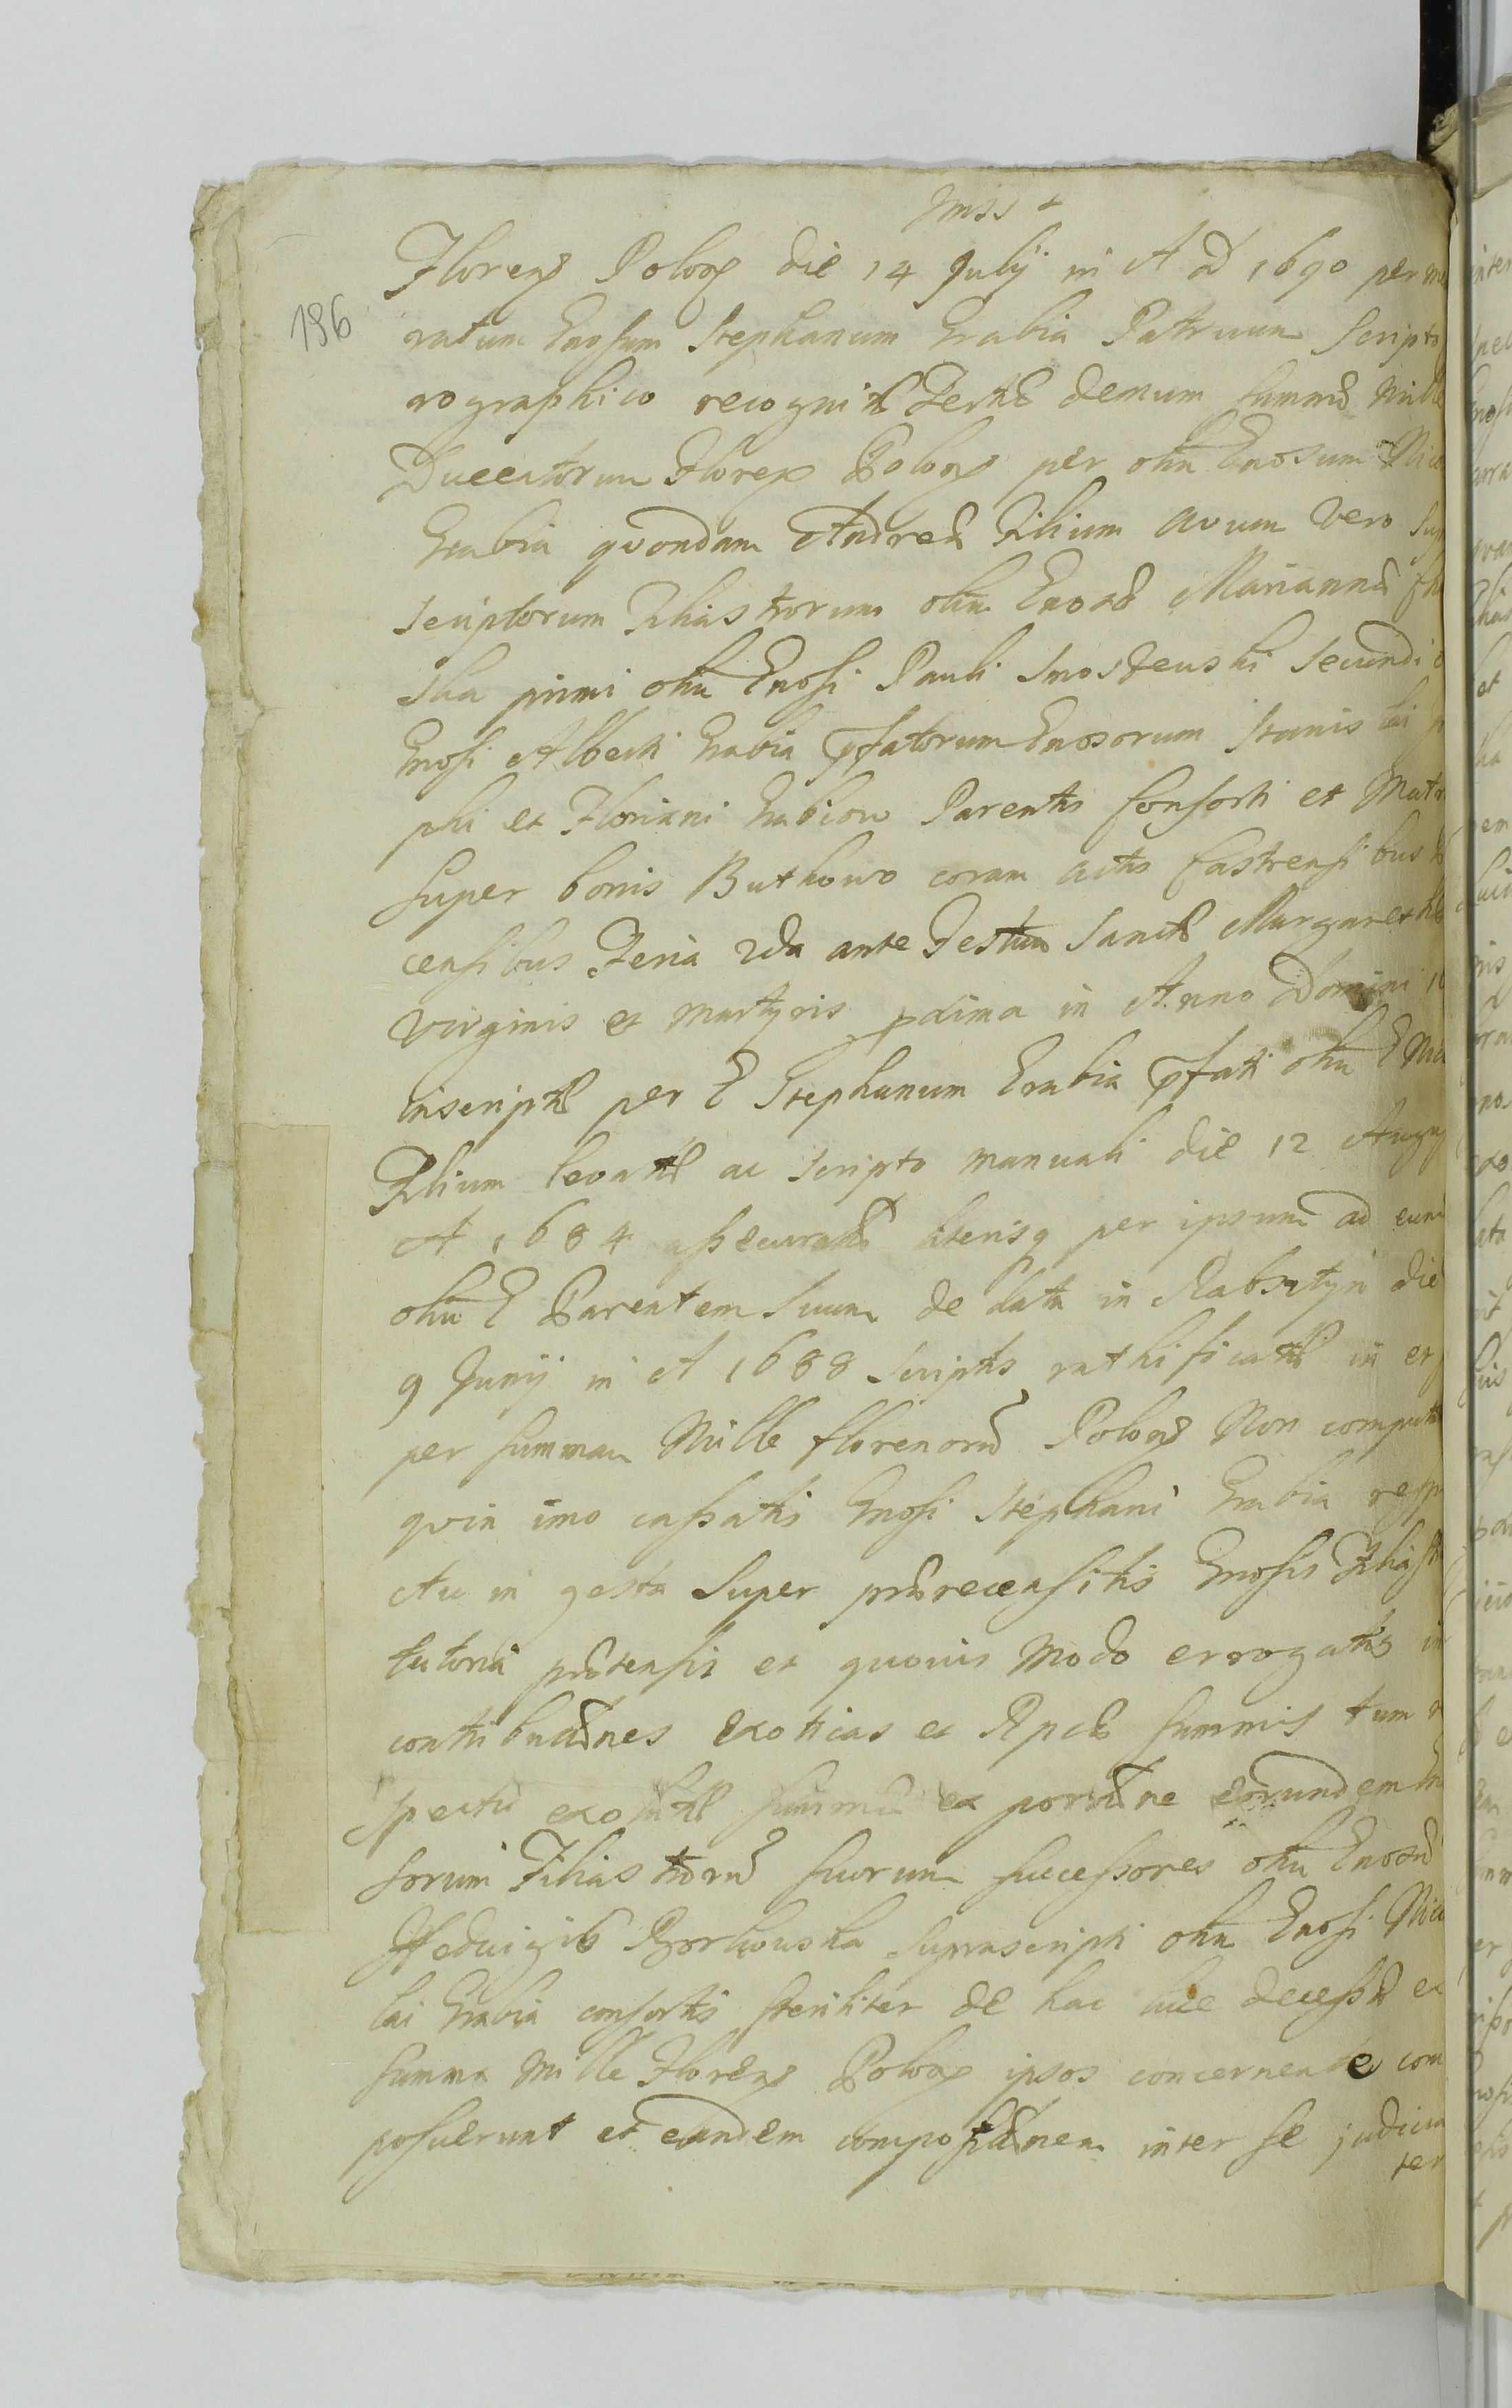 186
Floren Polon die 14 Julij in A D 1690 per
ratum Gnosum Stephanum Grabia Patruum Scripto
rographico recognit Tertiæ demum summæ Mille
Ducentorum Floren Polon per olim Gnosum Nico
Grabia quondam Andreæ Filium avum vero sup
scriptorum Filiastrorum olim Gnosæ Mariannæ
ska primi olim Gnosi Pauli Smoszewski secundi
Gnosi Alberti Grabia pfatorum Gnosorum Stanislai
phi et Floriani Grabiow Parentis Consorti et Matri
super bonis Buthowo coram actis Castrensibus
censibus Feria 2da ante Festum Sanctæ Margarethæ
Virginis et Martyris pdima in Anno Domini 16
inscriptæ per G Stephanum Grabia pfati olim G Nico
Filium levatæ ac scripto manuali die 12 Augu
A 1684 assecuratæ literisq per ipsum ad eund
olim G Parentem suum de data in Rabsztyn die
9 Junij in A 1688 scriptis rathificatæ in et
per summam Mille florenorũ Polon Non computa
quin imo cassatis Gnosi Stephani Grabia respe
ctu in gesta super prærecensitis Gnosis Filiast
tutoria prætensis et quovis modo errogatis in
contributnes exoticas et Rpcæ summis tum
spectu summæ ex portne eorundem Gno
sorum Filiastrorũ suorum successores olim Gnosæ
Hedvigis suprascripti olim Gnosi Nico
lai Grabia consortis steriliter de hac luce decessæ ex
summa Mille Floren Polon ipsos concernente com
posuerunt et eandem compositnem inter se judicia
ter